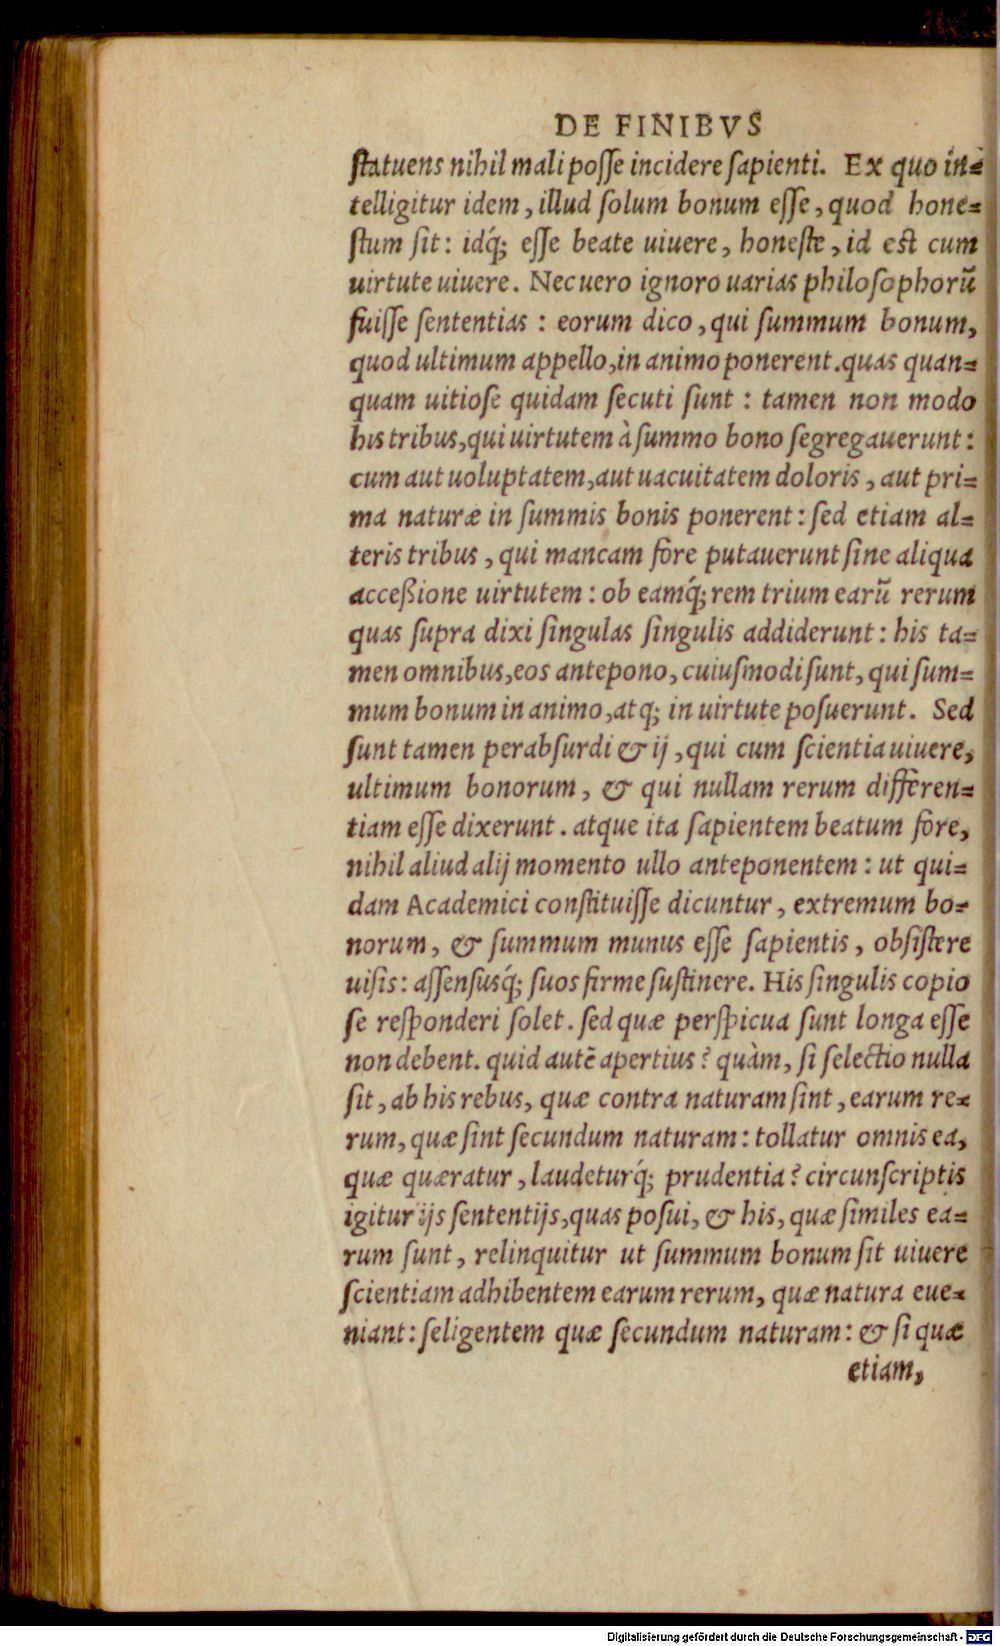 DE FINIBVS
ſtatuens nihil mali poſſe incidere ſapienti. Ex quo in=
telligitur idem, illud ſolum bonum eſſe, quod hone=
ſtum ſit: idq́; eſſe beate uiuere, honeſte, id eſt cum
uirtute uiuere. Nec uero ignoro uarias philoſophorū
fuiſſe ſententias: eorum dico, qui ſummum bonum,
quod ultimum appello, in animo ponerent. quas quan=
quam uitioſe quidam ſecuti ſunt: tamen non modo
his tribus, qui uirtutem à ſummo bono ſegregauerunt:
cum aut uoluptatem, aut uacuitatem doloris, aut pri=
ma naturæ in ſummis bonis ponerent: ſed etiam al=
teris tribus, qui mancam fore putauerunt ſine aliqua
acceßione uirtutem: ob eamq́; rem trium earū rerum
quas ſupra dixi ſingulas ſingulis addiderunt: his ta=
men omnibus, eos antepono, cuiuſmodi ſunt, qui ſum=
mum bonum in animo, atq; in uirtute poſuerunt. Sed
ſunt tamen perabſurdi & ij, qui cum ſcientia uiuere,
ultimum bonorum, & qui nullam rerum differen=
tiam eſſe dixerunt. atque ita ſapientem beatum fore,
nihil aliud alij momento ullo anteponentem: ut qui=
dam Academici conſtituiſſe dicuntur, extremum bo=
norum, & ſummum munus eſſe ſapientis, obſiſtere
uiſis: aſſenſusq́; ſuos firme ſuſtinere. His ſingulis copio
ſe reſponderi ſolet. ſed quæ perſpicua ſunt longa eſſe
non debent. quid autē apertius? quàm, ſi ſelectio nulla
ſit, ab his rebus, quæ contra naturam ſint, earum re=
rum, quæ ſint ſecundum naturam: tollatur omnis ea,
quæ quæratur, laudeturq́; prudentia? circunſcriptis
igitur ijs ſententijs, quas poſui, & his, quæ ſimiles ea=
rum ſunt, relinquitur ut ſummum bonum ſit uiuere
ſcientiam adhibentem earum rerum, quæ natura eue=
niant: ſeligentem quæ ſecundum naturam: & ſi quæ
etiam,
Digitalisierung gefördert durch die Deutsche Forschungsgemeinschaft - DFG